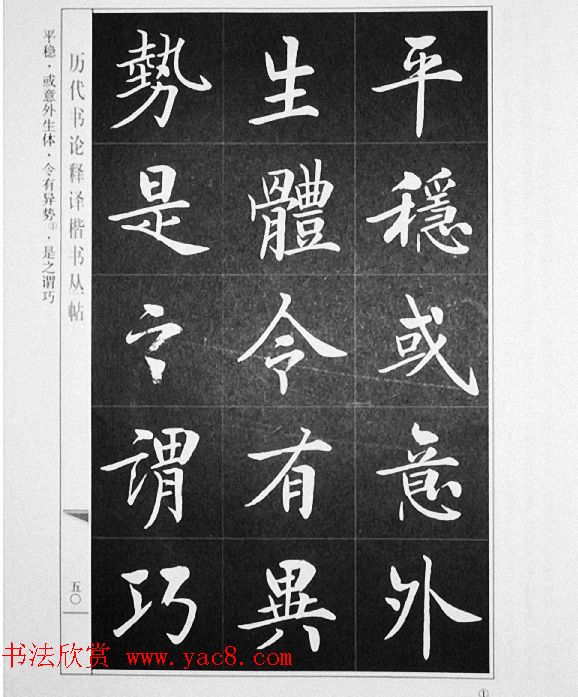 平穩或意外
生體令有異
勢是之謂巧
历代书论释译楷书丛帖
五〇
平稳，或意外生体，令有异势①，是之谓巧
书法欣赏 www.yac8.com
①